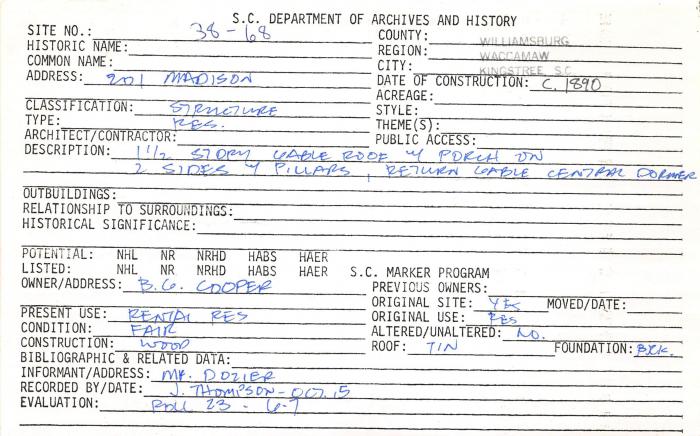 S.C. DEPARTMENT OF ARCHIVES AND HISTORY
SITE NO.: 38-68
COUNTY: WILLIAMSBURG
HISTORIC NAME:
REGION: WACCAMAW
COMMON NAME:
CITY: KINGSTREE, S.C.
ADDRESS: 201 MADISON
DATE OF CONSTRUCTION: C. 1890
ACREAGE:
CLASSIFICATION: STRUCTURE
STYLE:
TYPE: RES.
THEME(S):
ARCHITECT/CONTRACTOR:
PUBLIC ACCESS:
DESCRIPTION: 1 1/2 STORY GABLE ROOF W PORCH ON
2 SIDES W PILLARS, RETURN GABLE CENTRAL DORMER
OUTBUILDINGS:
RELATIONSHIP TO SURROUNDINGS:
HISTORICAL SIGNIFICANCE:
POTENTIAL: NHL NR NRHD HABS HAER
LISTED: NHL NR NRHD HABS HAER S.C. MARKER PROGRAM
OWNER/ADDRESS: B.G. COOPER
PREVIOUS OWNERS:
ORIGINAL SITE: YES MOVED/DATE:
PRESENT USE: RENTAL RES
ORIGINAL USE: RES
CONDITION: FAIR
ALTERED/UNALTERED: NO.
CONSTRUCTION: WOOD
ROOF: TIN FOUNDATION: BRK.
BIBLIOGRAPHIC & RELATED DATA:
INFORMANT/ADDRESS: MR. DOZIER
RECORDED BY/DATE: J. THOMPSON - OCT. 15
EVALUATION: ROLL 23 - 6-7